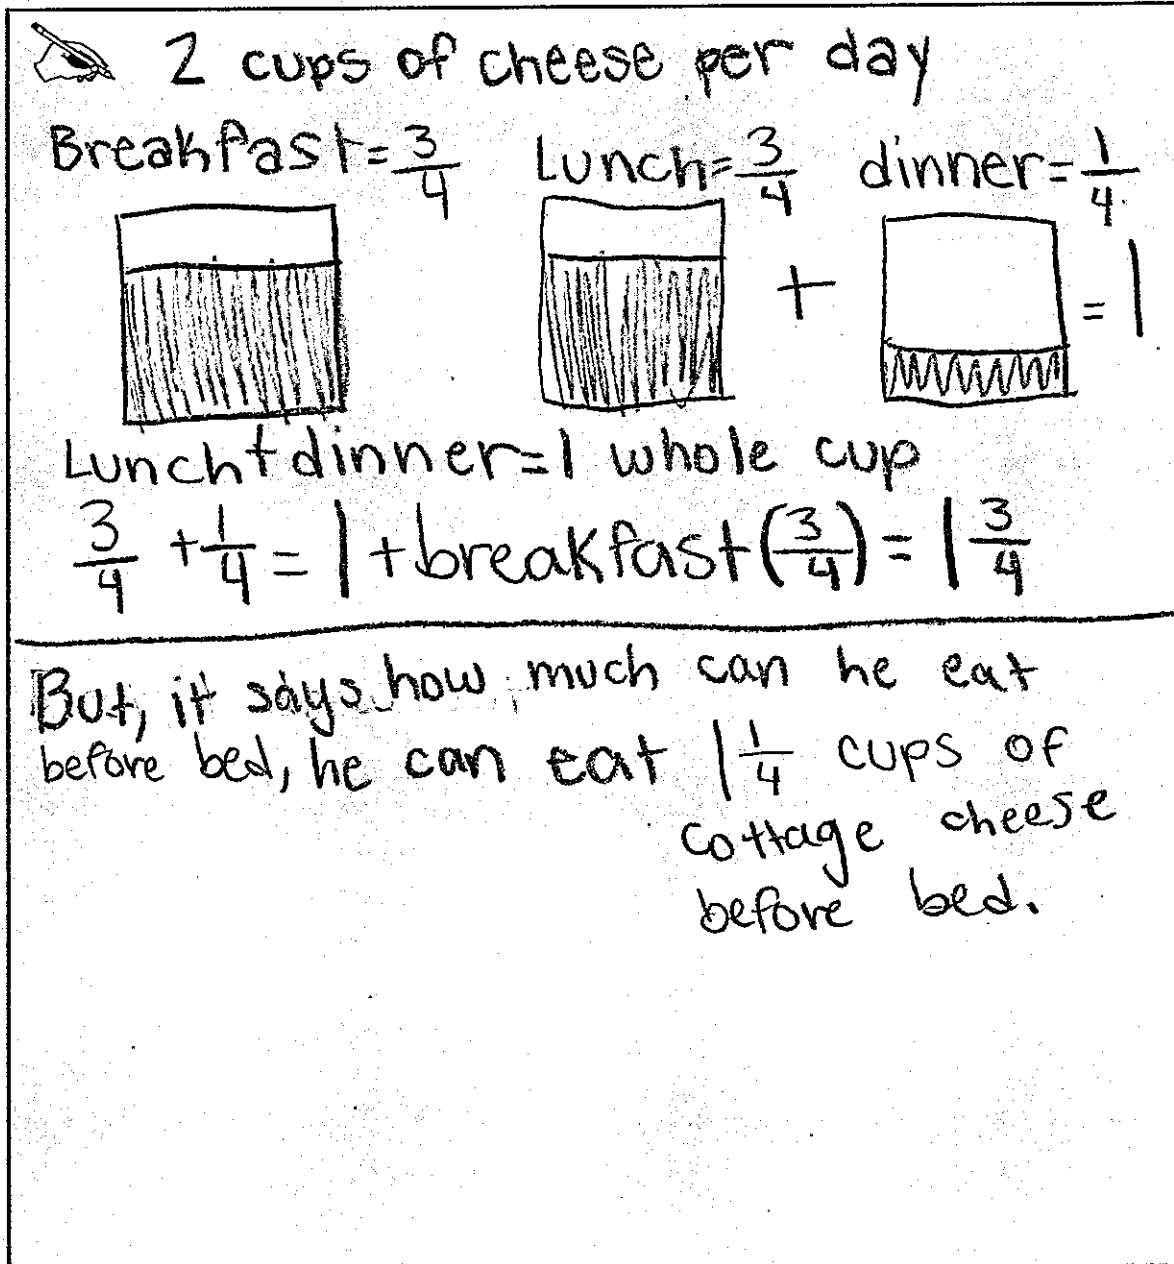 2 cups of cheese per day
Breakfast=3/4 Lunch=3/4 dinner=1/4
+ = 1
Lunch+dinner=1 whole cup
3/4 + 1/4 = 1 + breakfast (3/4) = 1 3/4
But, it says how much can he eat
before bed, he can eat 1 1/4 cups of
cottage cheese
before bed.